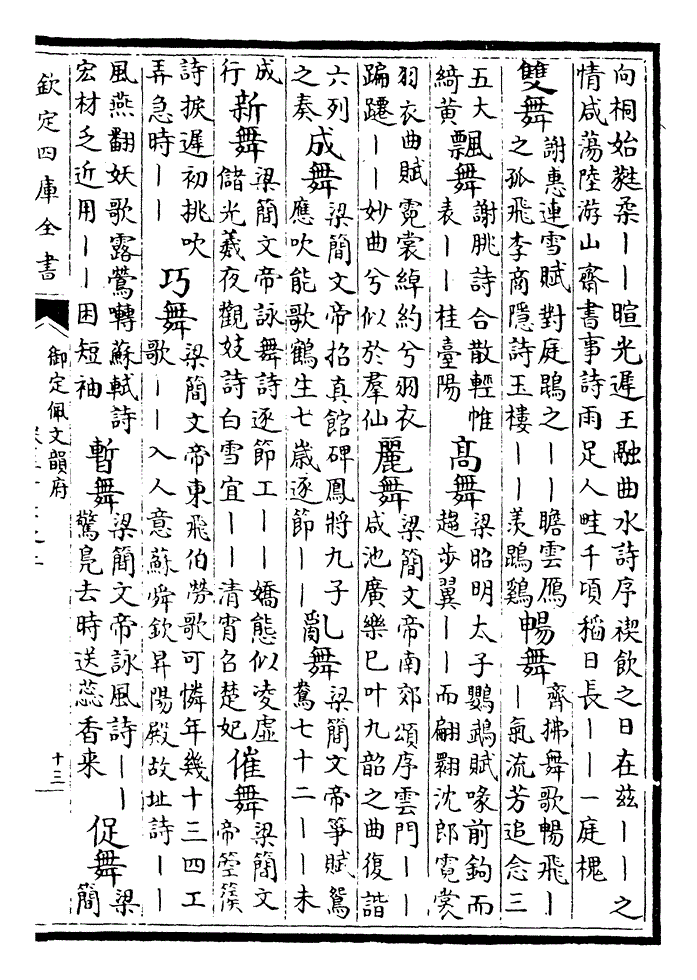 向桐始蕤柔——暄光遲王融曲水詩序禊飲之日在兹——之
情咸蕩陸游山齋書事詩雨足人畦千頃稻日長——一庭槐
雙舞
謝惠連雪賦對庭鵾之——瞻雲鴈
之孤飛李商隱詩玉樓——羨鵾鷄
暢舞
齊拂舞歌暢飛—
—氣流芳追念三
五大
綺黃
飄舞
謝朓詩合散輕帷
表——桂臺陽
高舞
梁昭明太子鸚鵡賦喙前鉤而
趨步翼——而翩翾沈郎霓裳
羽衣曲賦霓裳綽約兮羽衣
蹁躚——妙曲兮似於羣仙
麗舞
梁簡文帝南郊頌序雲門——
咸池廣樂巳叶九韶之曲復諧
六列
之奏
成舞
梁簡文帝招真館碑鳳將九子
應吹能歌鶴生七嵗逐節——
亂舞
梁簡文帝箏賦鴛
鴦七十二——未
成
行
新舞
梁簡文帝詠舞詩逐節工——嬌態似凌虛
儲光羲夜觀妓詩白雪宜——清宵召楚妃
催舞
梁簡文
帝箜篌
詩捩遲初挑吹
弄急時——
巧舞
梁簡文帝東飛伯勞歌可憐年幾十三四工
歌——入人意蘇舜欽昇陽殿故址詩——
風燕翻妖歌露鶯囀蘇軾詩
宏材乏近用——困短袖
暫舞
梁簡文帝詠風詩——
驚鳧去時送蕊香来
促舞
梁
簡
欽定四庫全書
御定佩文韻府
十三